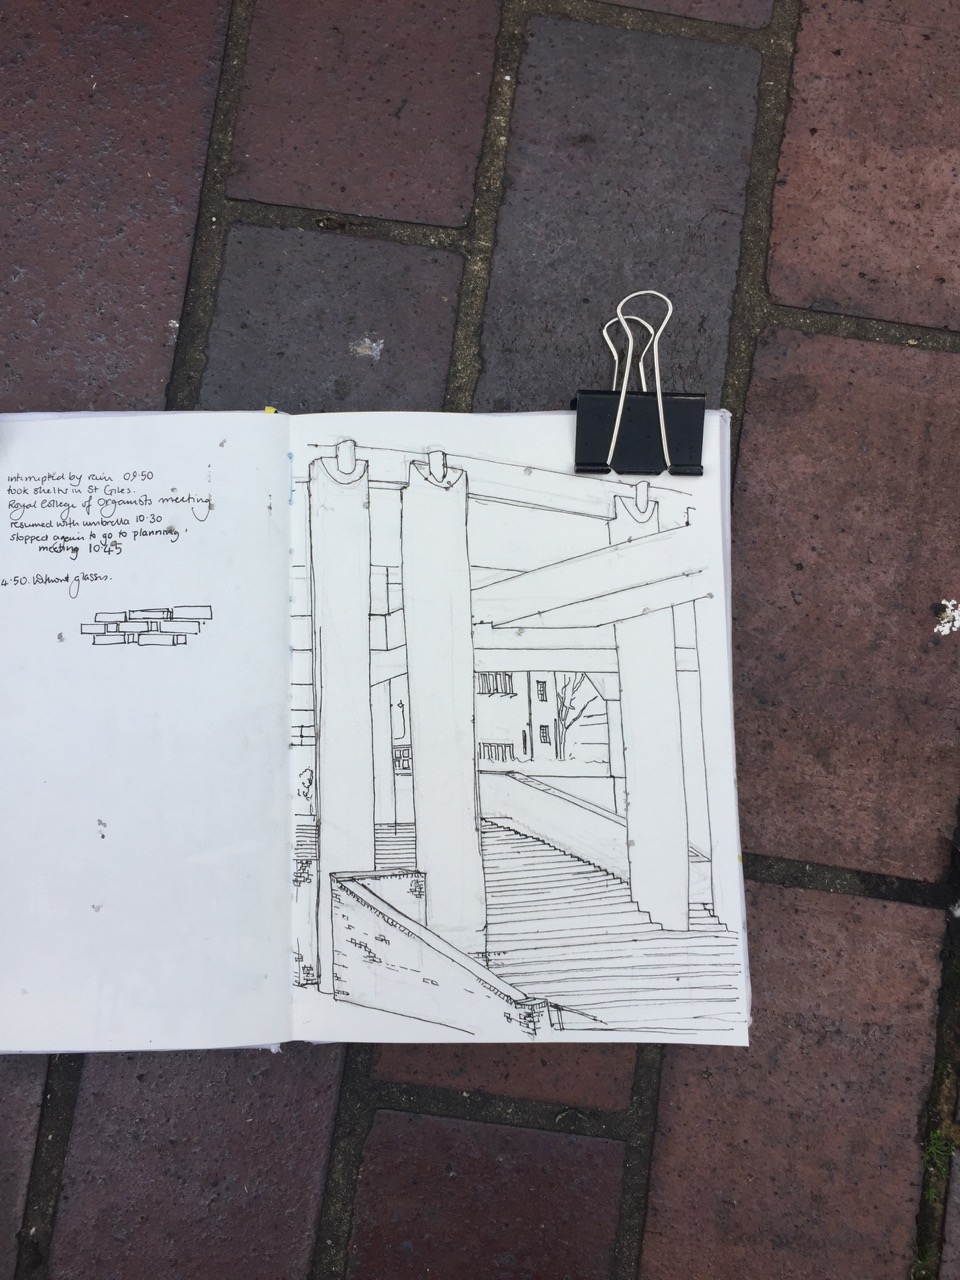 interrupted by rain 09.50
took shelter in St Giles.
Royal College of Organists meeting
resumed with umbrella 10.30
stopped again to go to planning
meeting 10.45
4.50. Without glasses.